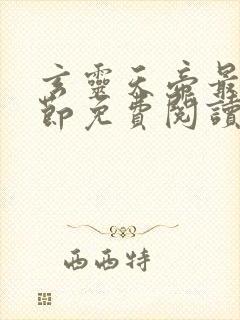 玄靈天帝最
節免費閱讀
西西特